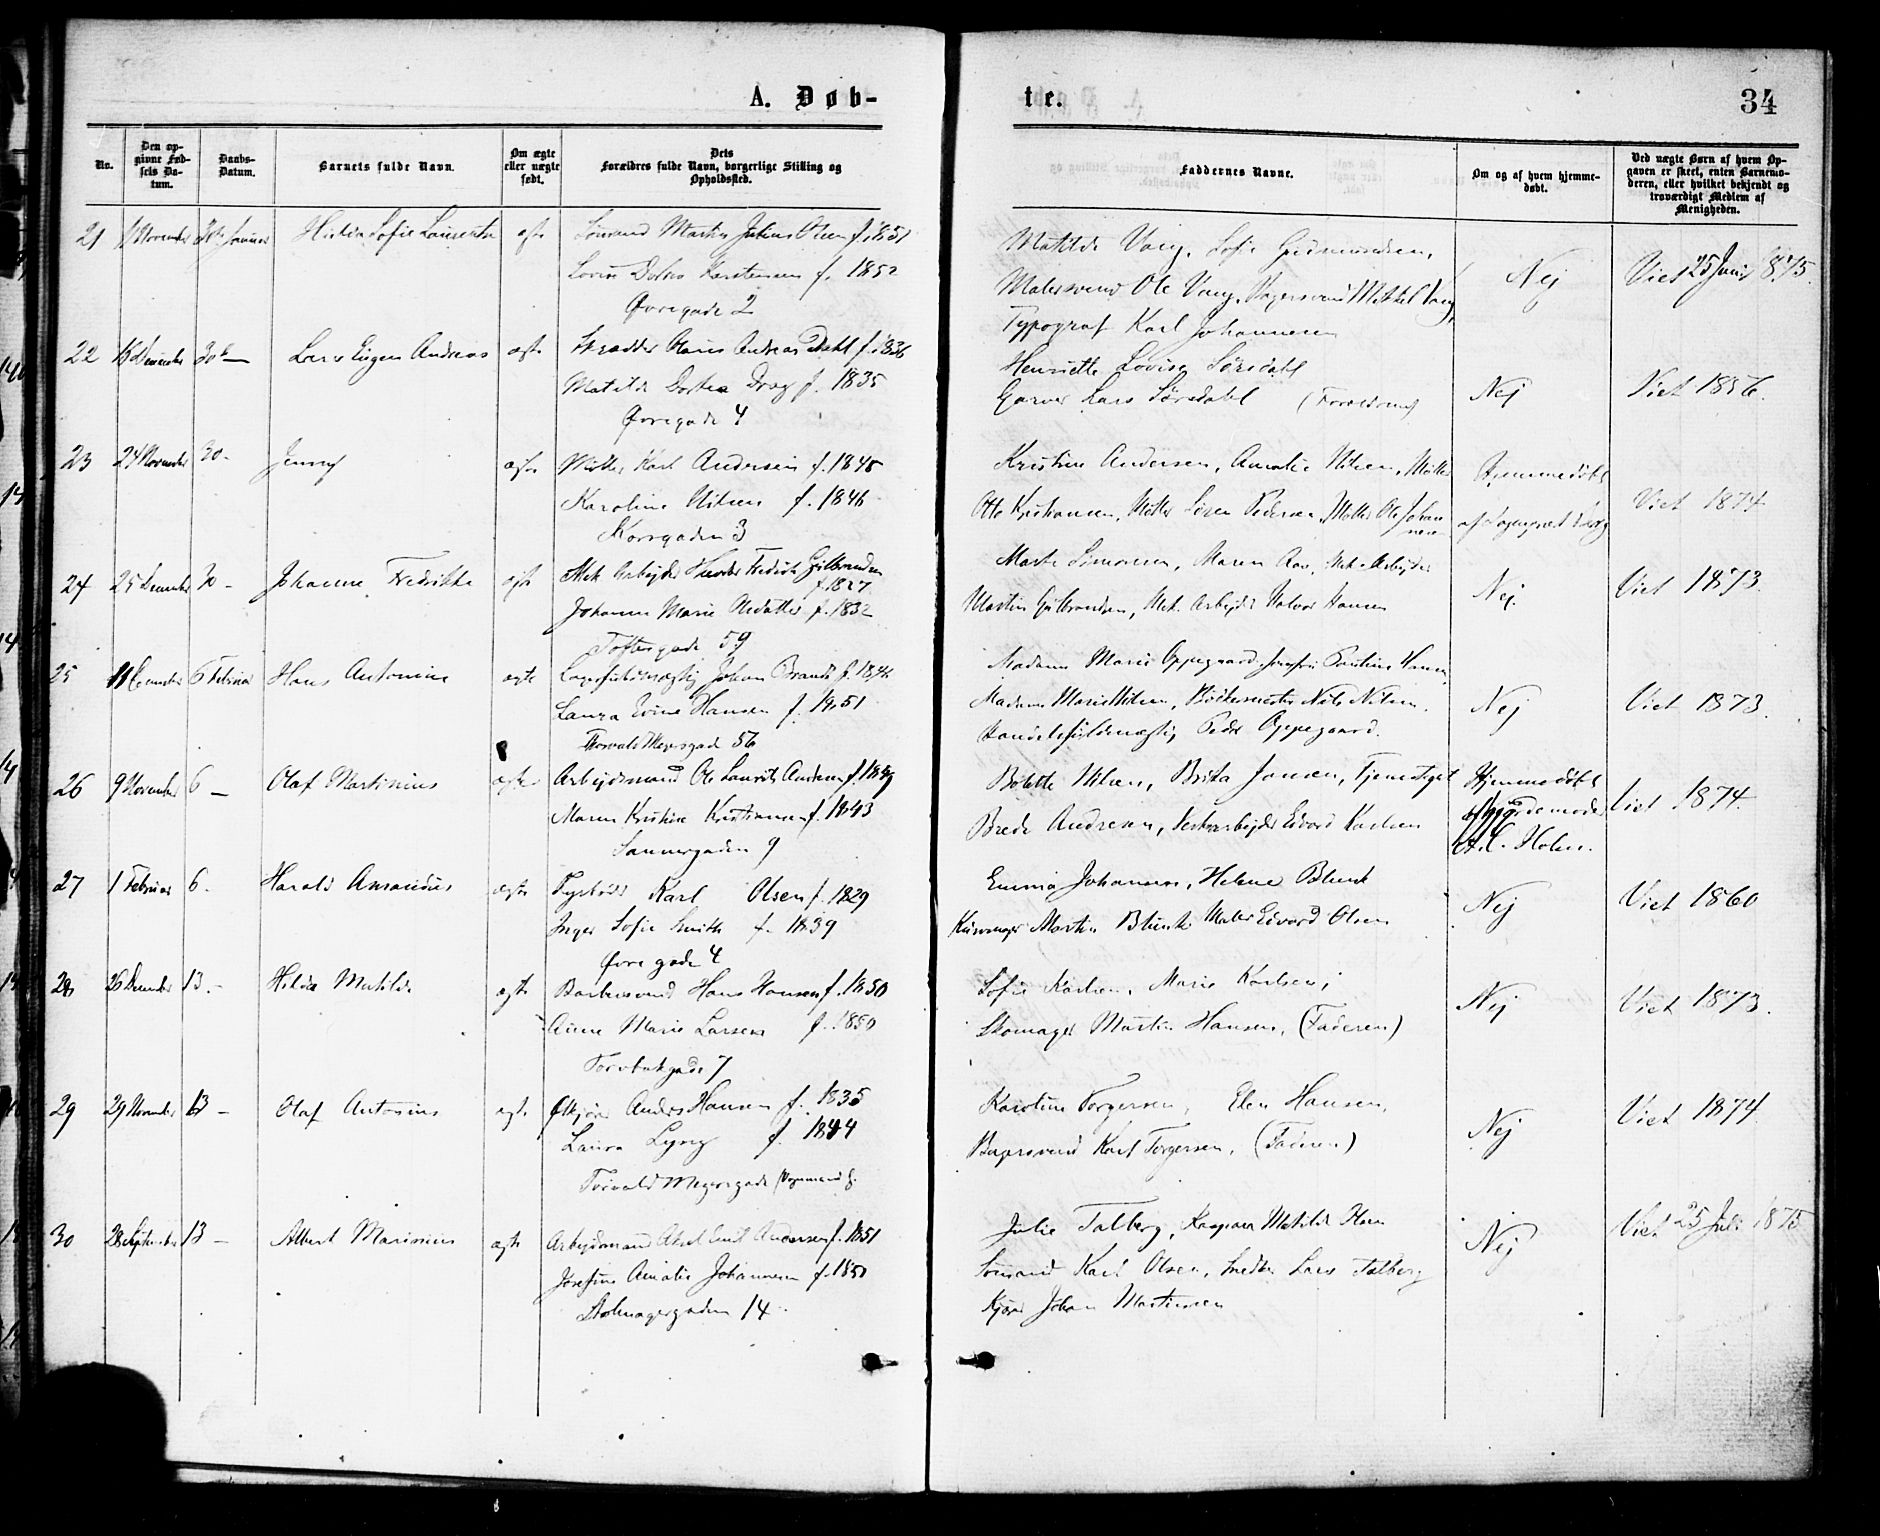 A. Døb-
te.
34
No.
Den op-
givne Fød-
sels Da-
tum.
Daabs-
Datum.
Barnets fulde Navn.
Om ægte
eller uægte
født.
Dets
Forældres fulde Navn, borgerlige Stilling og
Opholdssted.
Faddernes Navne.
Om og af hvem hjemme-
døbt.
Ved uægte Børn af hvem Op-
gaven er skeet, enten Barnemo-
deren, eller hvilket bekjendt og
troværdigt Medlem af
Menigheden.
21 11 November Januar Hilda Sofie ægte Sømand Martin Julius Olsen f. 1851
Karstensen f. 1852
Øvregade 2
Matilde Vang, Sofie Gudmundsen,
Malersvend Ole Vang, Mikkel Vang,
Typograf Karl Johannesen
Nej
Viet 25 Juni 1875.
22 December 30 Lars Eugen Andreas ægte Skrædder Andreas Dahl f. 1836
Matilde Dortea f. 1835
Øvregade 4
Henriette Lovise Sørsdahl
Garver Lars Sørsdahl (Forældrene)
Nej
Viet 1856.
23 24 November 30 - Jenny ægte Møller Karl Andersen f. 1845
Karoline Nilsen f. 1846
Korsgaden 3
Kristine Andersen, Amalie Nilsen, Møller
Otto Kristiansen, Møller Søren Pedersen, Møller Ole Johan
nesen
Hjemmedøbt
af
Viet 1874
24 25 December 30 - Johanne Fredrikke ægte Mek. Arbejder Fredrik Gulbrandsen
f. 1827
Johanne Marie f. 1832
Toftesgade 59
Marte Simonsen, Maren Aas, Mek. Arbejder
Martin Gulbrandsen, Mek. Arbejder Halvor Hansen
Nej.
Viet 1873.
25 6 Februar Hans Antonius ægte Johan Brandt f. 1846
Laura Evine Hansen f. 1851
Thorvald Meyersgade 56
Madam Marie Oppegaard, Jomfru Pauline Hansen
Madam Marie Nilsen, Nils Nilsen,
Handelsfuldmægtig Peder Oppegaard.
Nej
Viet 1873.
26 9 November 6 - Olaf Martinius ægte Arbejdsmand Ole Laurits Andersen f. 1849
Maren Kristine Kristiansen f. 1843
Sannergaden 9
Bolette Nilsen, Brita Jansen, Tjenestegut
Brede Andresen, Edvard Karlsen
Hjemmedøbt
af Gjordemoder
Holm.
Viet 1874.
27 1 Februar 6. Harald ægte Karl Olsen f. 1829
Inger Sofie Smith f. 1839
Øvregade 4
Emma Johansen, Helene Blunk
Martin Blunk Maler Edvard Olsen
Nej
Viet 1860
28 26 December 13. - Hilda Matilde ægte Barbersvend Hans Hansen f. 1850
Anne Marie Larsen f. 1850
Torvbakgade 7
Sofie Karlsen, Marie Karlsen,
Skomager Martin Hansen, (Faderen)
Nej
Viet 1873.
29 29 November 13 - Olaf Antonius ægte Anders Hansen f. 1835
Laura Lyng f. 1844
Torvald Meyersgade
Karoline Torgersen, Elen Hansen,
Bagersvend Karl Torgersen, (Faderen)
Nej
Viet 1874.
30 28 September 13 - Albert Marinius ægte Arbejdsmand Axel Emil Andersen f. 1851
Josefine Amalie Johannesen f. 1850
Stolmagergaden 14
Julie Talberg, Matilde Olsen
Sømand Karl Olsen, Lars Talberg
Johan Martinsen
Nej
Viet 25 Juli 1875